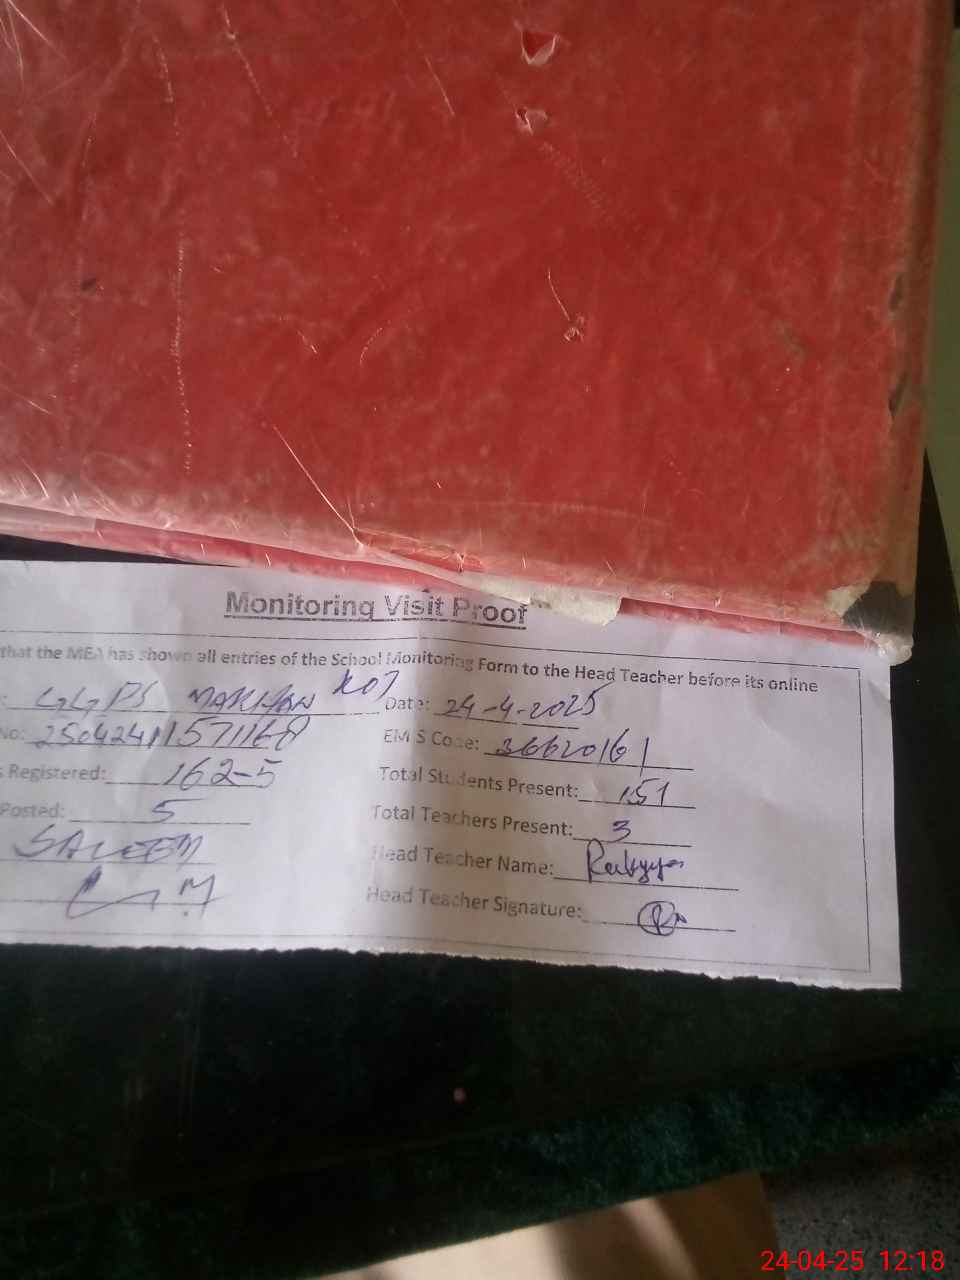 Monitoring Visit Proof
that the MEA has shown all entries of the School Monitoring Form to the Head Teacher before its online
: GGPS MAKHAN KOT Date: 24-4-2025
No: 250424111571168 EMIS Code: 36620161
s Registered: 162-5 Total Students Present: 151
Posted: 5 Total Teachers Present: 3
SALEEM Head Teacher Name:
Head Teacher Signature:
24-04-25 12:18